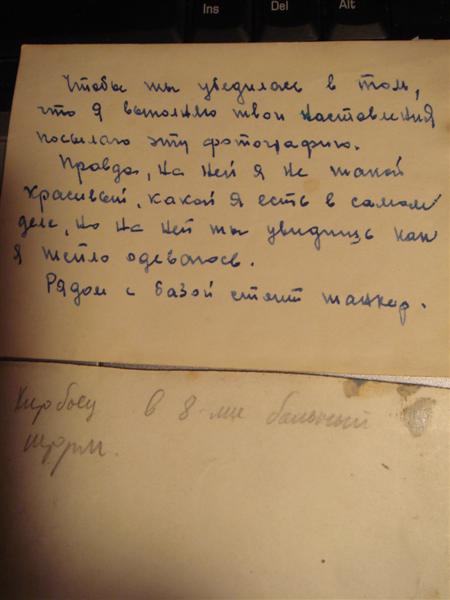 Ins
Del
Alt
Чтобы ты убедилась в том,
что я выполняю твои наставления
посылаю эту фотографию.
Правда, на ней я не такой
красивый, какой я есть в самом
деле, но на ней ты увидишь как
я тепло одеваюсь.
Рядом с базой стоит танкер.
в 8-ми бальный
шторм.